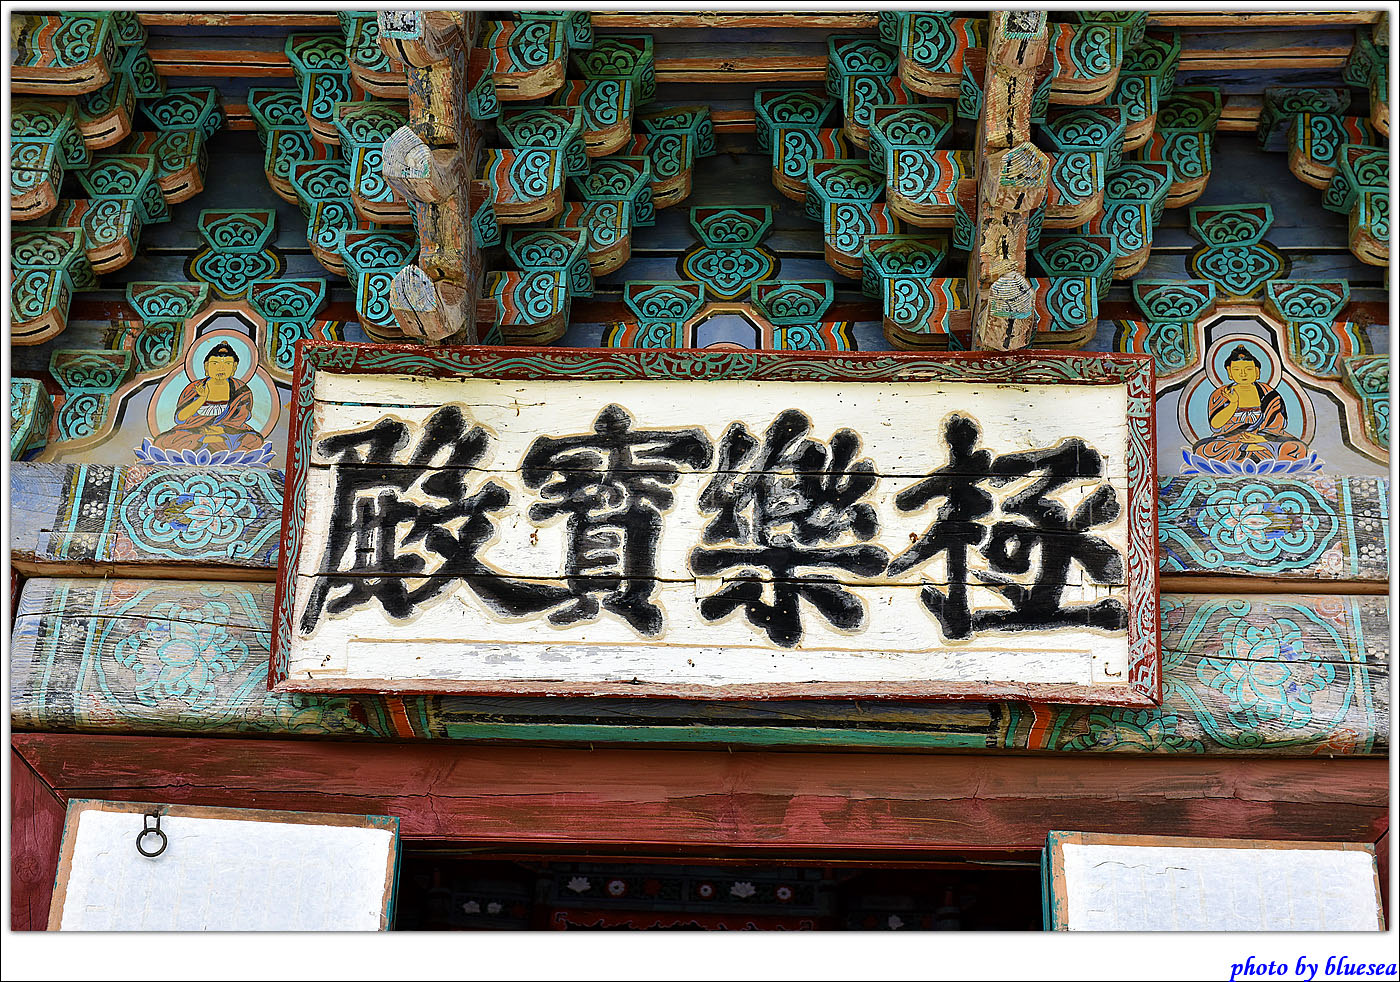 極樂寶殿
photo by bluesea